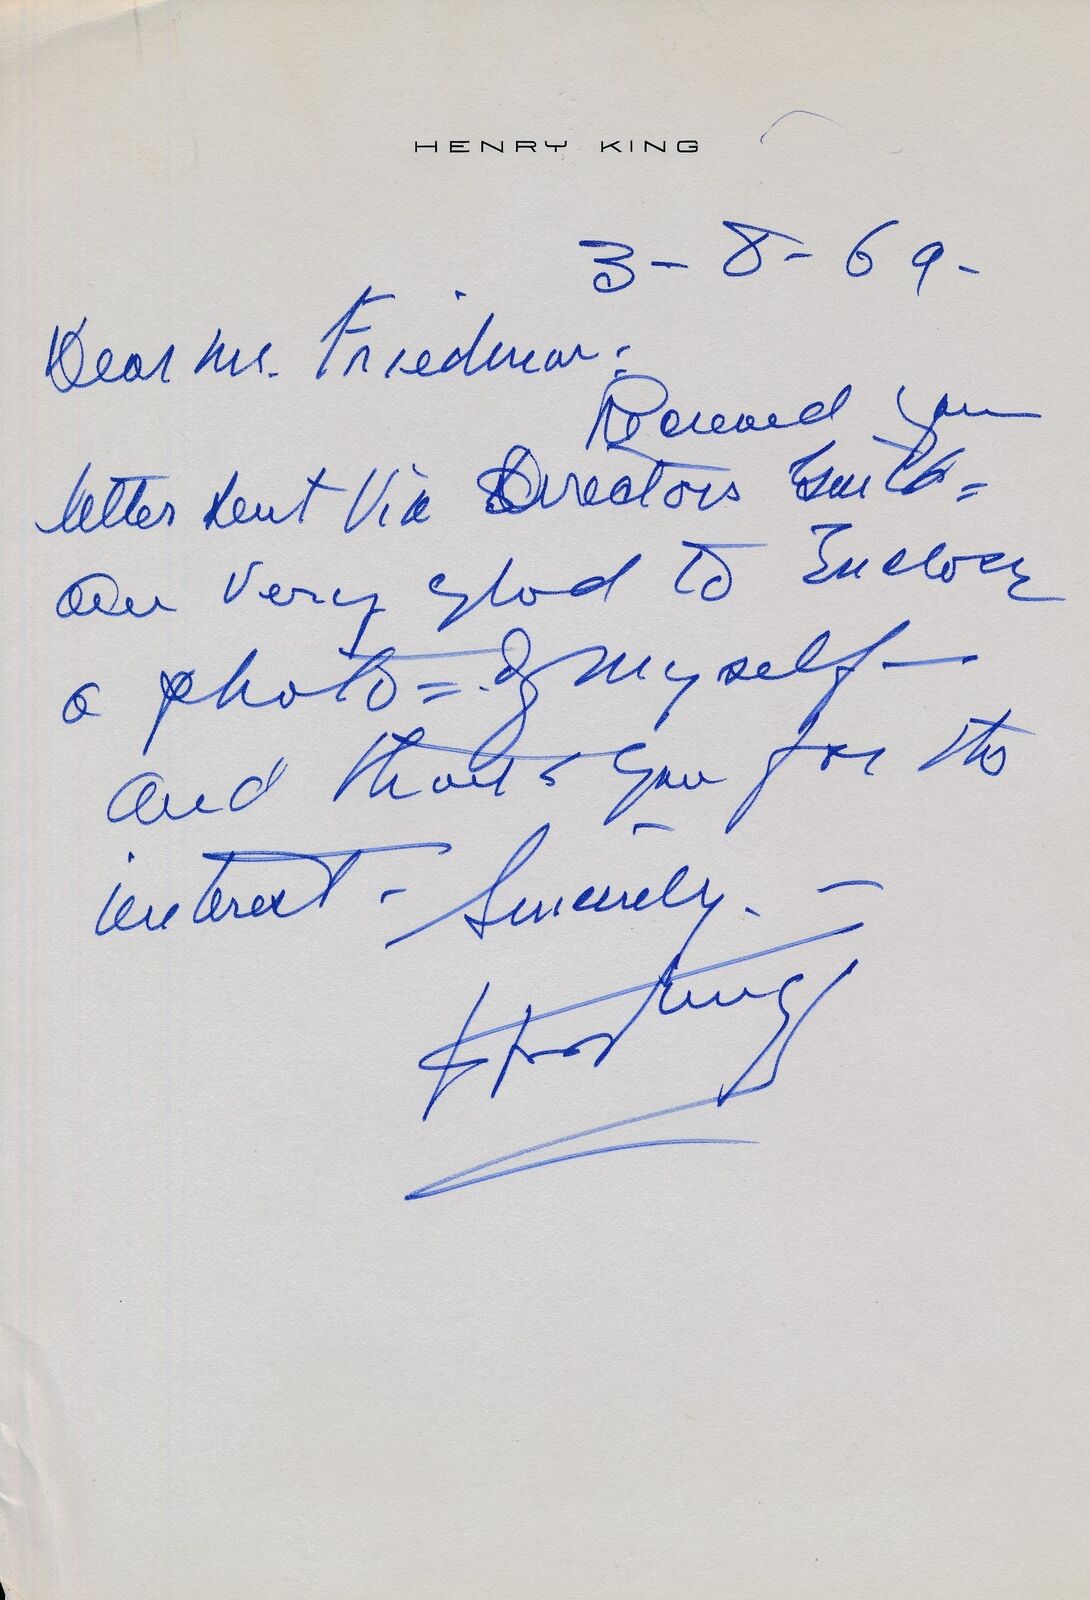 HENRY KING
3-8-69-
Dear Mr. Friedman:
Received your
letter sent Via Directors Guild =
am very glad to Enclose
a photo = of myself -
and thank you for the
interest - Sincerely. -
King